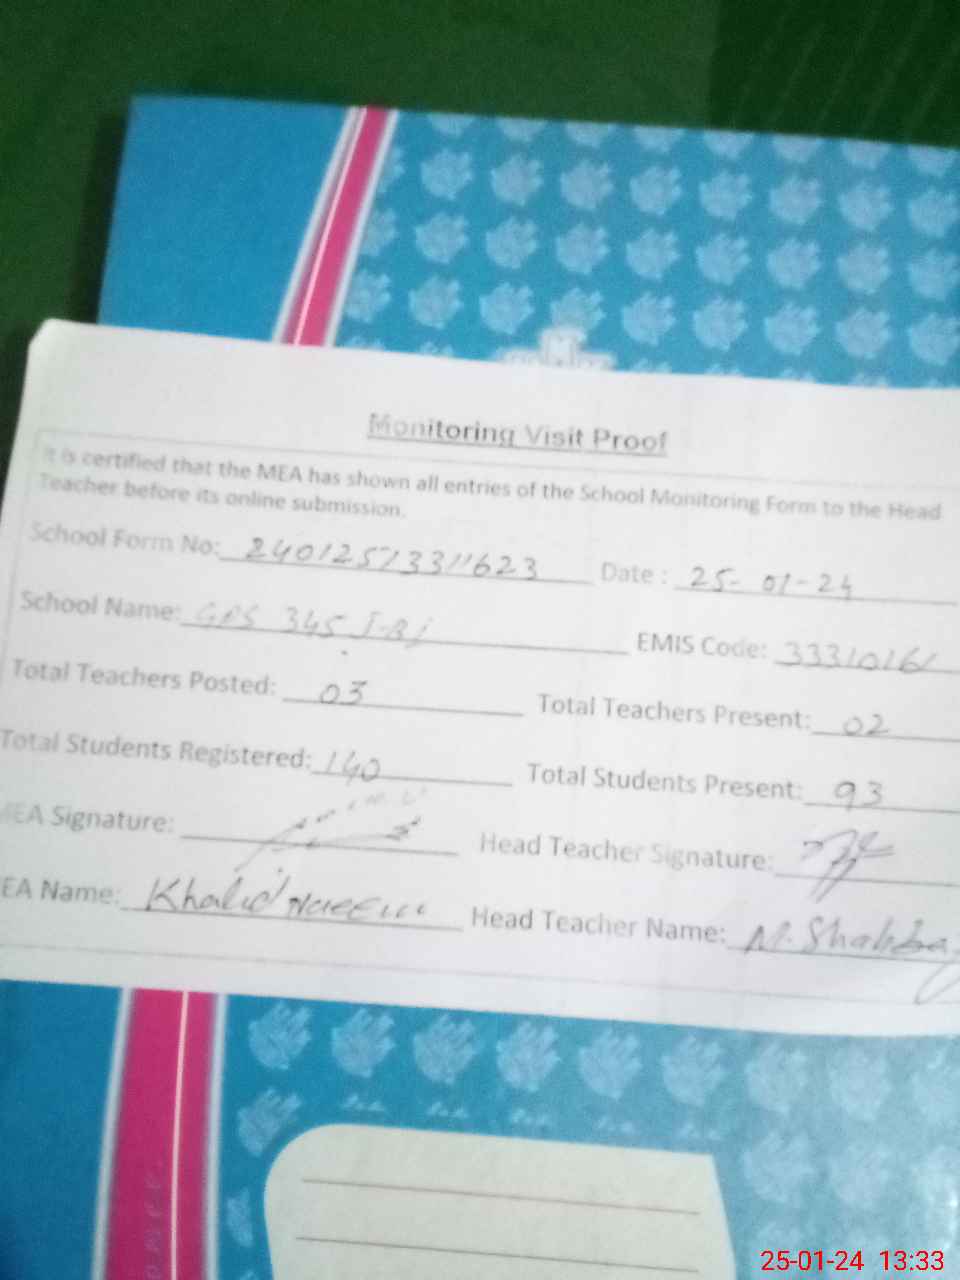 Monitoring Visit Proof
It is certified that the MEA has shown all entries of the School Monitoring Form to the Head
Teacher before its online submission.
School Form No: 24012513311623 Date : 25-01-24
School Name: GPS 345 EMIS Code: 33310161
Total Teachers Posted: 03 Total Teachers Present: 02
Total Students Registered: 140 Total Students Present: 93
MEA Signature: Head Teacher Signature:
EA Name: Khalid Naeem Head Teacher Name: M. Shahbaz
25-01-24 13:33